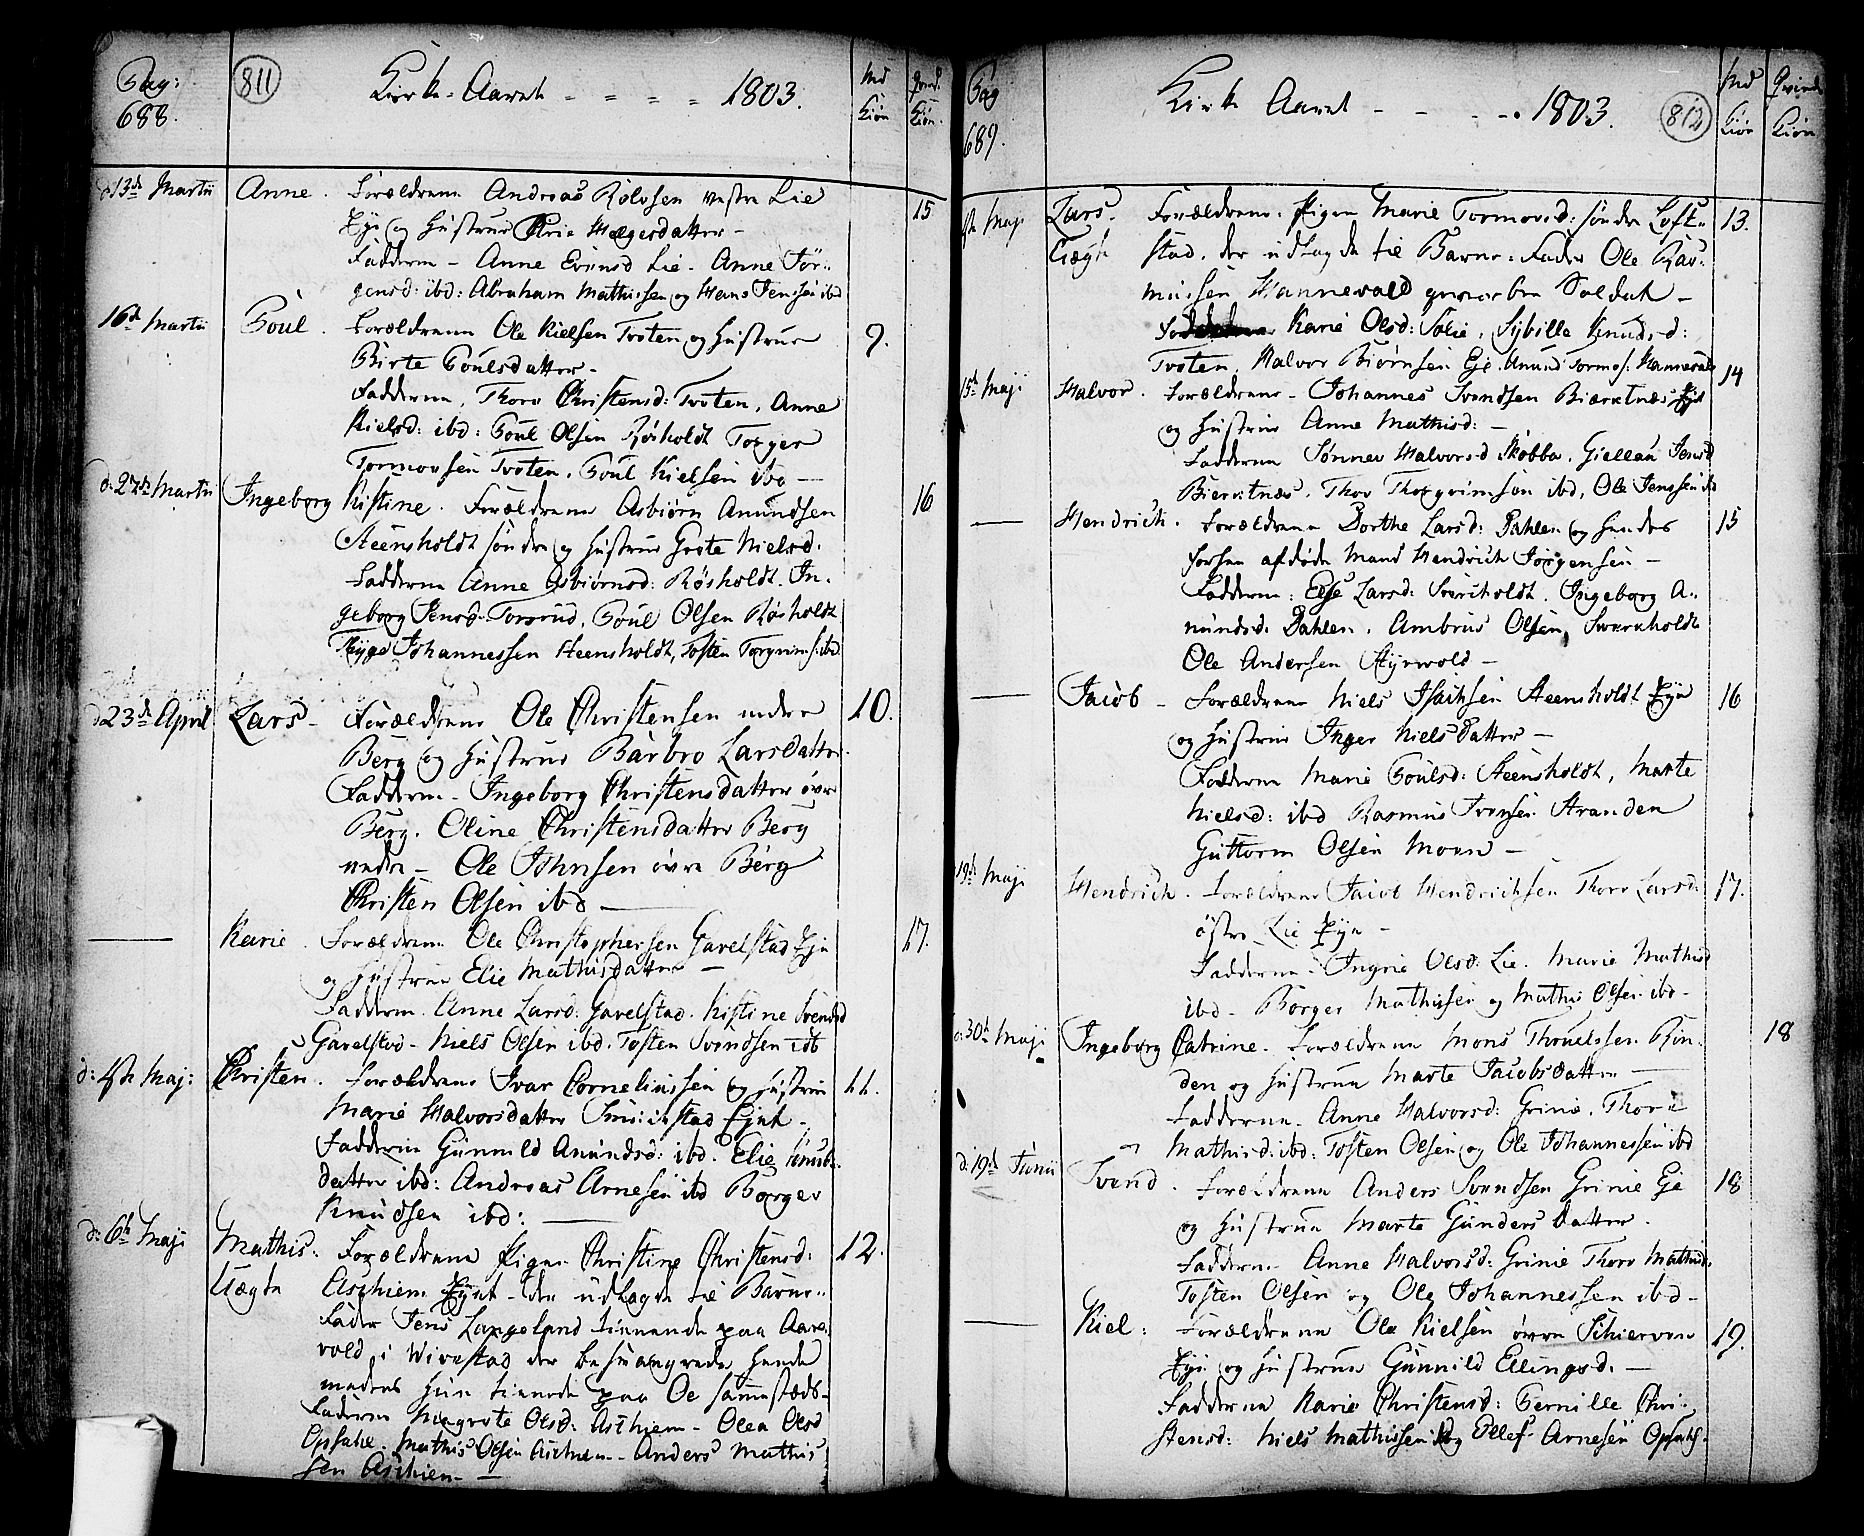 Pag: 688. 811 Kirke-Aaret - - - - 1803. Md Kiøn Qvind Kiøn.
d 13de Martii Anne. Forældrene Andreas Rolvsen vestre Lie 15
Eye og Hustrue
Fadderne - Anne Evensd Lie. Anne Jør-
gensd: ibd: Abraham Mathissen og Hans Jenssen ibd
16de Martii Poul. Forældrene Ole Kielsen Tvoten og Hustrue 9.
Birte Poulsdatter-
Fadderne, Thore Christensd: Tvoten, Anne
Kielsd: ibd: Poul Olsen Røsholdt Torger
Tormovsen Tvoten. Poul Kielsen ibd -
d: 27de Martii Ingeborg Kistine. Forældrene Asbiørn Amundsen 16
Steensholdt søndre og Hustrue Grete Nielsd.
Fadderne Anne Asbiørnsd: Røsholdt. In-
geborg Jensd Torsrud. Poul Olsen Røsholdt
Johannessen Steensholdt, Tosten Torgrims: ibd
d 23de April Lars - Forældrene Ole Christensen nedre 10.
Berg og Hustrue Barbro Larsdatter.
Fadderne - Ingeborg Christensdatter øvre
Berg. Oline Christensdatter Berg
nedre - Ole Johnsen øvre Berg
Christen Olsen ibd -
— Karie. Forældrene Ole Christophersen Gavelstad Eye 17.
og Hustrue Elie Mathisdatter -
Fadderne. Anne Larsd: Gavelstad. Kistine Svendsd
Gavelstad - Niels Olsen ibd. Tosten Svendsen ibd
d: 4de Maj: Christen. Forældrene Ivar Corneliussen og Hustrue 11.
Marie Halvorsdatter
Fadderne Gunnild Amundsd: ibd. Elie Knuds-
datter ibd: Andreas Arnesen ibd Børger
Knudsen ibd: —
d: 6te Maji Mathis: Forældrene Pigen Christine Christensd: 12.
Uægte Aschiem Eyet - den udlagde til Barne-
Fader Jens Langeland tienende paa Aare-
vold i Wivestad der besvangrede hende
medens hun tienede paa Oe sammesteds-
Fadderne Olsd: Aschiem - Olea Olsd
Opsahl. Mathis Olsen Aschiem - Anders Mathis
sen Aschiem -
Pag 689. Kirke Aaret - - - - 1803. 812 Md Kiøn Qvinde Kiøn
4de Maji Lars. Forældrene. Pigen Marie Tormovsd: søndre Loft- 13.
Uægte stad, der udlagde til Barne-Fader Ole Ras-
mussen Hannevold geworben Soldat -
Karie Olsd: Solie, Sybille Knudsd:
Tvoten, Halvor Biørnsen Eje. Amund Tormos: Hannevold
15de Maji Halvor. Forældrene - Johannes Svendsen Bierketnæs Eyet 14
og Hustrue Anne Mathisd: -
Fadderne Sønnev Halvorsd Skobba. Giellau Jensd
Bierketnæs. Thov Thorgrimsen ibd, Ole Jenssen ibd
— Hendrich. Forældrene Dorthe Larsd: Dahlen og hendes 15
forhen afdøde Mand Hendrich Jørgensen -
Fadderne: Else Larsd: Sværtholdt. Ingeborg A-
mundsd. Dahlen. Ambrus Olsen, Sværtholdt
Ole Andersen Styrvold -
— Jacob - Forældrene Niels Isachsen Steensholdt Eye 16
og Hustrue Inger Nielsdatter -
Fadderne Marie Poulsd: Steensholdt, Marte
Nielsd: ibd Rasmus Iversen Stranden
Guttorm Olsen Moen -
19de Maji Hendrich. Forældrene Jacob Hendrichsen Thore Larsd: 17.
østre Lie Eye -
Fadderne: Ingrie Olsd: Lie. Marie Mathisd
ibd - Børger Mathissen og Mathis Olsen ibd -
d: 30te Maji Ingeborg Catrine. Forældrene Mons Thruelssen Røn- 18
den og Hustrue Marte Jacobsdatter —
Fadderne. Anne Halvorsd: Grinie. Thore
Mathisd: ibd: Tosten Olsen og Ole Johannessen ibd
d: 19de Junii Svend. Forældrene Anders Svendsen Grinie Eje 18
og Hustrue Marte Gundersdatter.
Fadderne Anne Halvorsd: Grinie Thore Mathisd.
Tosten Olsen og Ole Johannessen ibd -
— Kiel: Forældrene Ole Kielsen øvre Schierven 19.
Eye og Hustrue Gunnild Ellingsd. -
Fadderne Karie Christensd: Pernille Chri-
stensd: Niels Mathissen og Ellef Arnesen Opsahl.